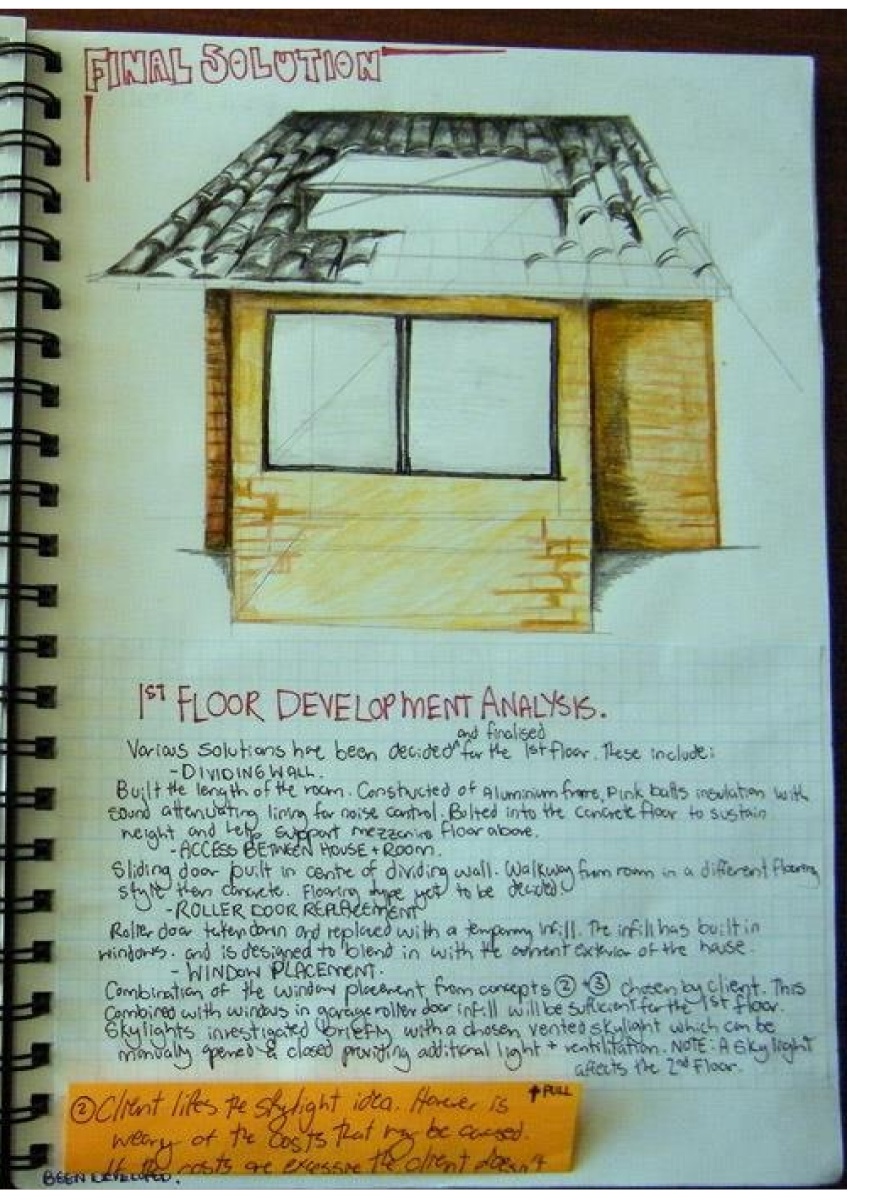 FINAL SOLUTION
1ST FLOOR DEVELOPMENT ANALYSIS.
and finalised
Various solutions have been decided ^ for the 1st floor. These include:
- DIVIDING WALL.
Built the length of the room. Constructed of Aluminium frame, Pink batts insulation with
sound attenuating lining for noise control. Bolted into the concrete floor to sustain
height and help support mezzanine floor above.
- ACCESS BETWEEN HOUSE + ROOM.
Sliding door built in centre of dividing wall. Walkway from room in a different flooring
style then concrete. Flooring type yet to be decided.
- ROLLER DOOR REPLACEMENT
Roller door taken down and replaced with a temporary infill. The infill has built in
windows. and is designed to blend in with the current exterior of the house.
- WINDOW PLACEMENT.
Combination of the window placement from concepts ② + ③ chosen by client. This
combined with windows in garage roller door infill will be sufficient for the 1st floor.
Skylights investigated briefly with a chosen vented skylight which can be
manually opened & closed providing additional light + ventilitation. NOTE: A Skylight
affects the 2nd Floor.
↑ PULL
② Client likes the skylight idea. However is
weary of the costs that may be caused.
If the costs are excessive the client doesn't
BEEN DEVELOPED.